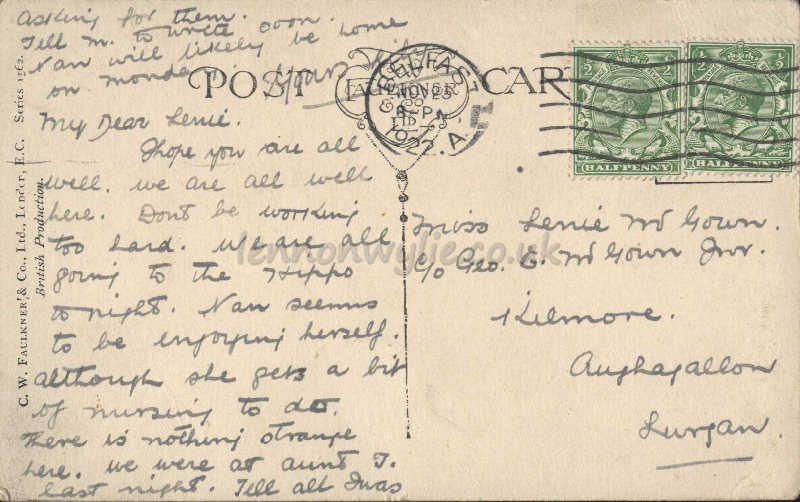 asking for them.
Tell M. to write soon.
Nan will likely be home
on monday.
POST CARD
FAULKNER
C. W. FAULKNER & CO., LTD., LONDON, E.C. Series 1362.
British Production.
BELFAST
NOV 23
1922
HALFPENNY
HALFPENNY
My Dear Lenie.
I hope you are all
well. we are all well
here. Dont be working
too hard. We are all
going to the Hippo
to night. Nan seems
to be enjoying herself.
although she gets a bit
of nursing to do.
There is nothing strange
here. we were at aunt J.
last night. Tell all I was
Miss Lenie McGown.
c/o Geo. E. McGown Jnr.
Kilmore.
Aughagallon
Lurgan.
lennonwylie.co.uk